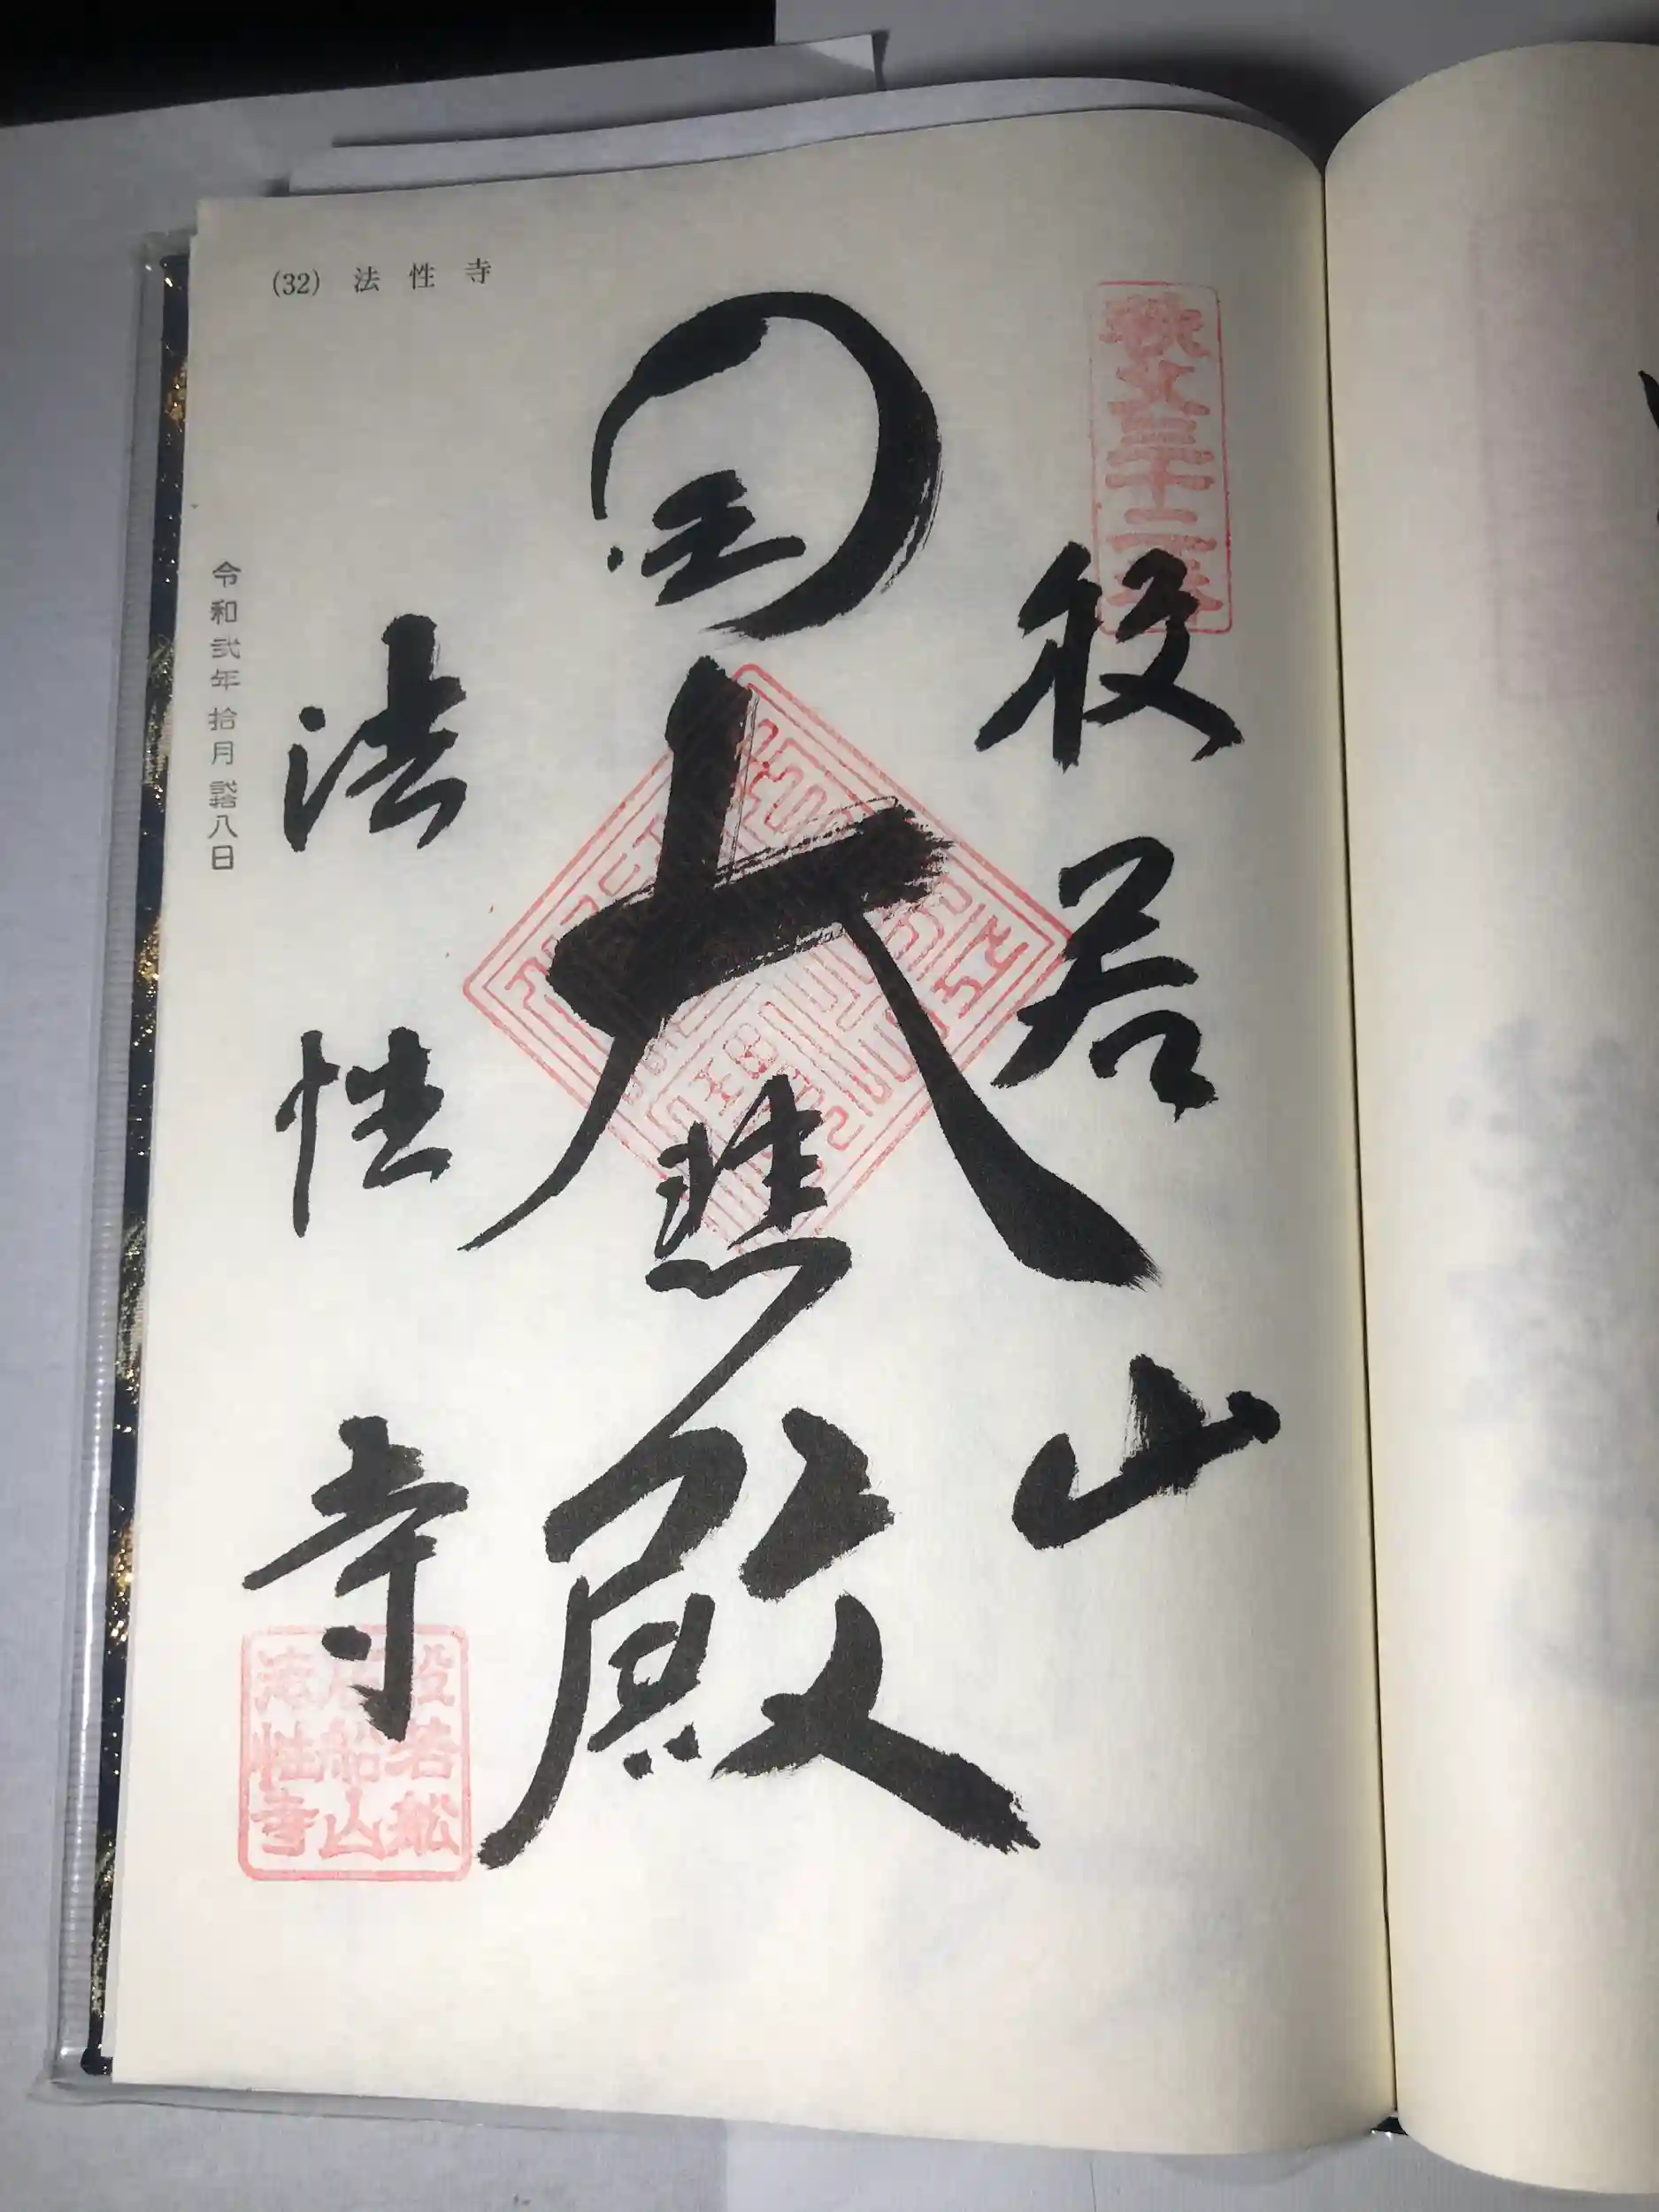 (32) 法性寺
秩父三十二番
般若山
大悲殿
法性寺
令和弐年拾月弐拾八日
船山
法性寺